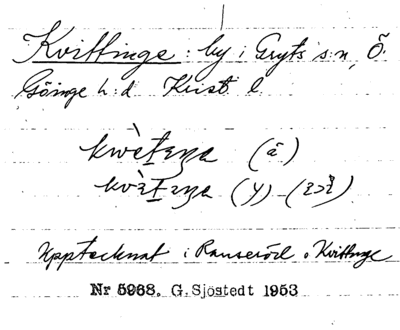 Kvittinge : by i Gryts s:n, Ö.
Göinge h:d Krist l
kwètɛŋa (ä)
(y)
Upptecknat i Ranseröd o Kvittinge
Nr 5968. G. Sjöstedt 1953